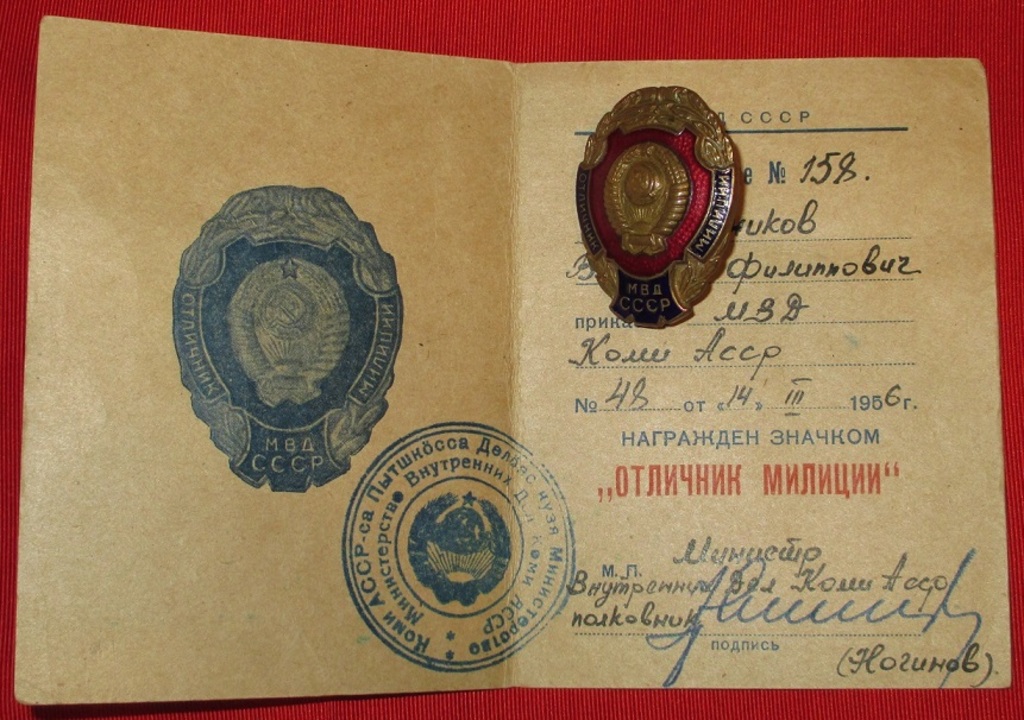 ОТЛИЧНИК
МИЛИЦИИ
МВД
СССР
Коми АССР-са Пытшкӧсса Делӧяс кузя Министерство
Министерство Внутренних Дел Коми АССР
СССР
№ 158.
ОТЛИЧНИК
МИЛИЦИИ
МВД
СССР
Филиппович
МВД
Коми Асср
№ 48 от "14" III 1956 г.
НАГРАЖДЕН ЗНАЧКОМ
„ОТЛИЧНИК МИЛИЦИИ“
Министр
М. П.
Внутренних Дел Коми Асср
полковник
подпись
(Ногинов).